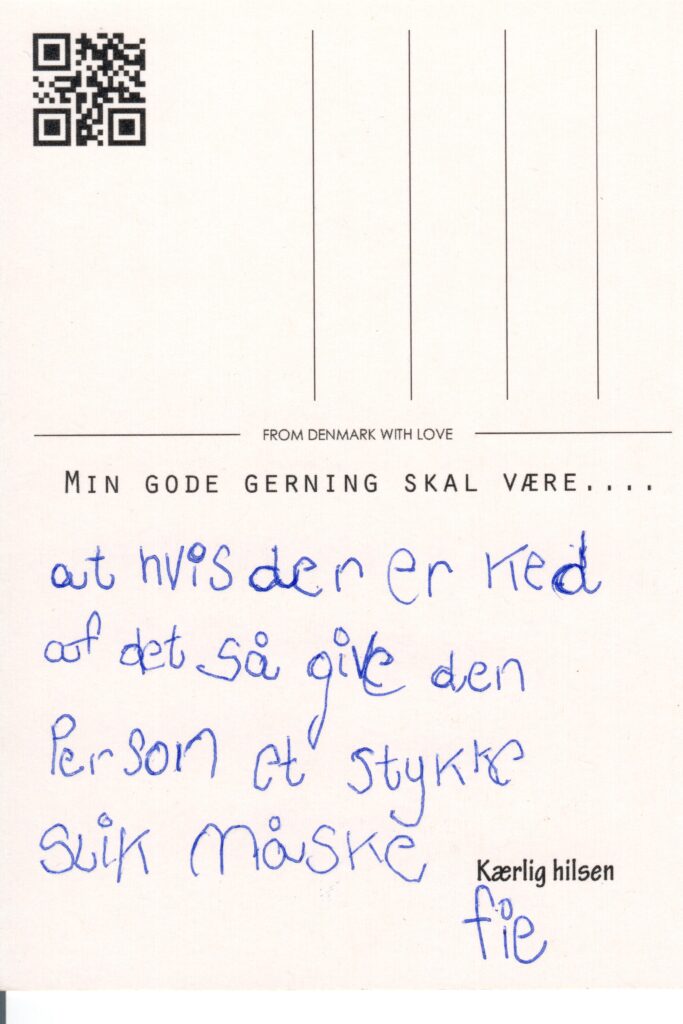 FROM DENMARK WITH LOVE
MIN GODE GERNING SKAL VÆRE....
at hvis der er ked
af det så give den
Person et stykke
slik måske
Kærlig hilsen
fie